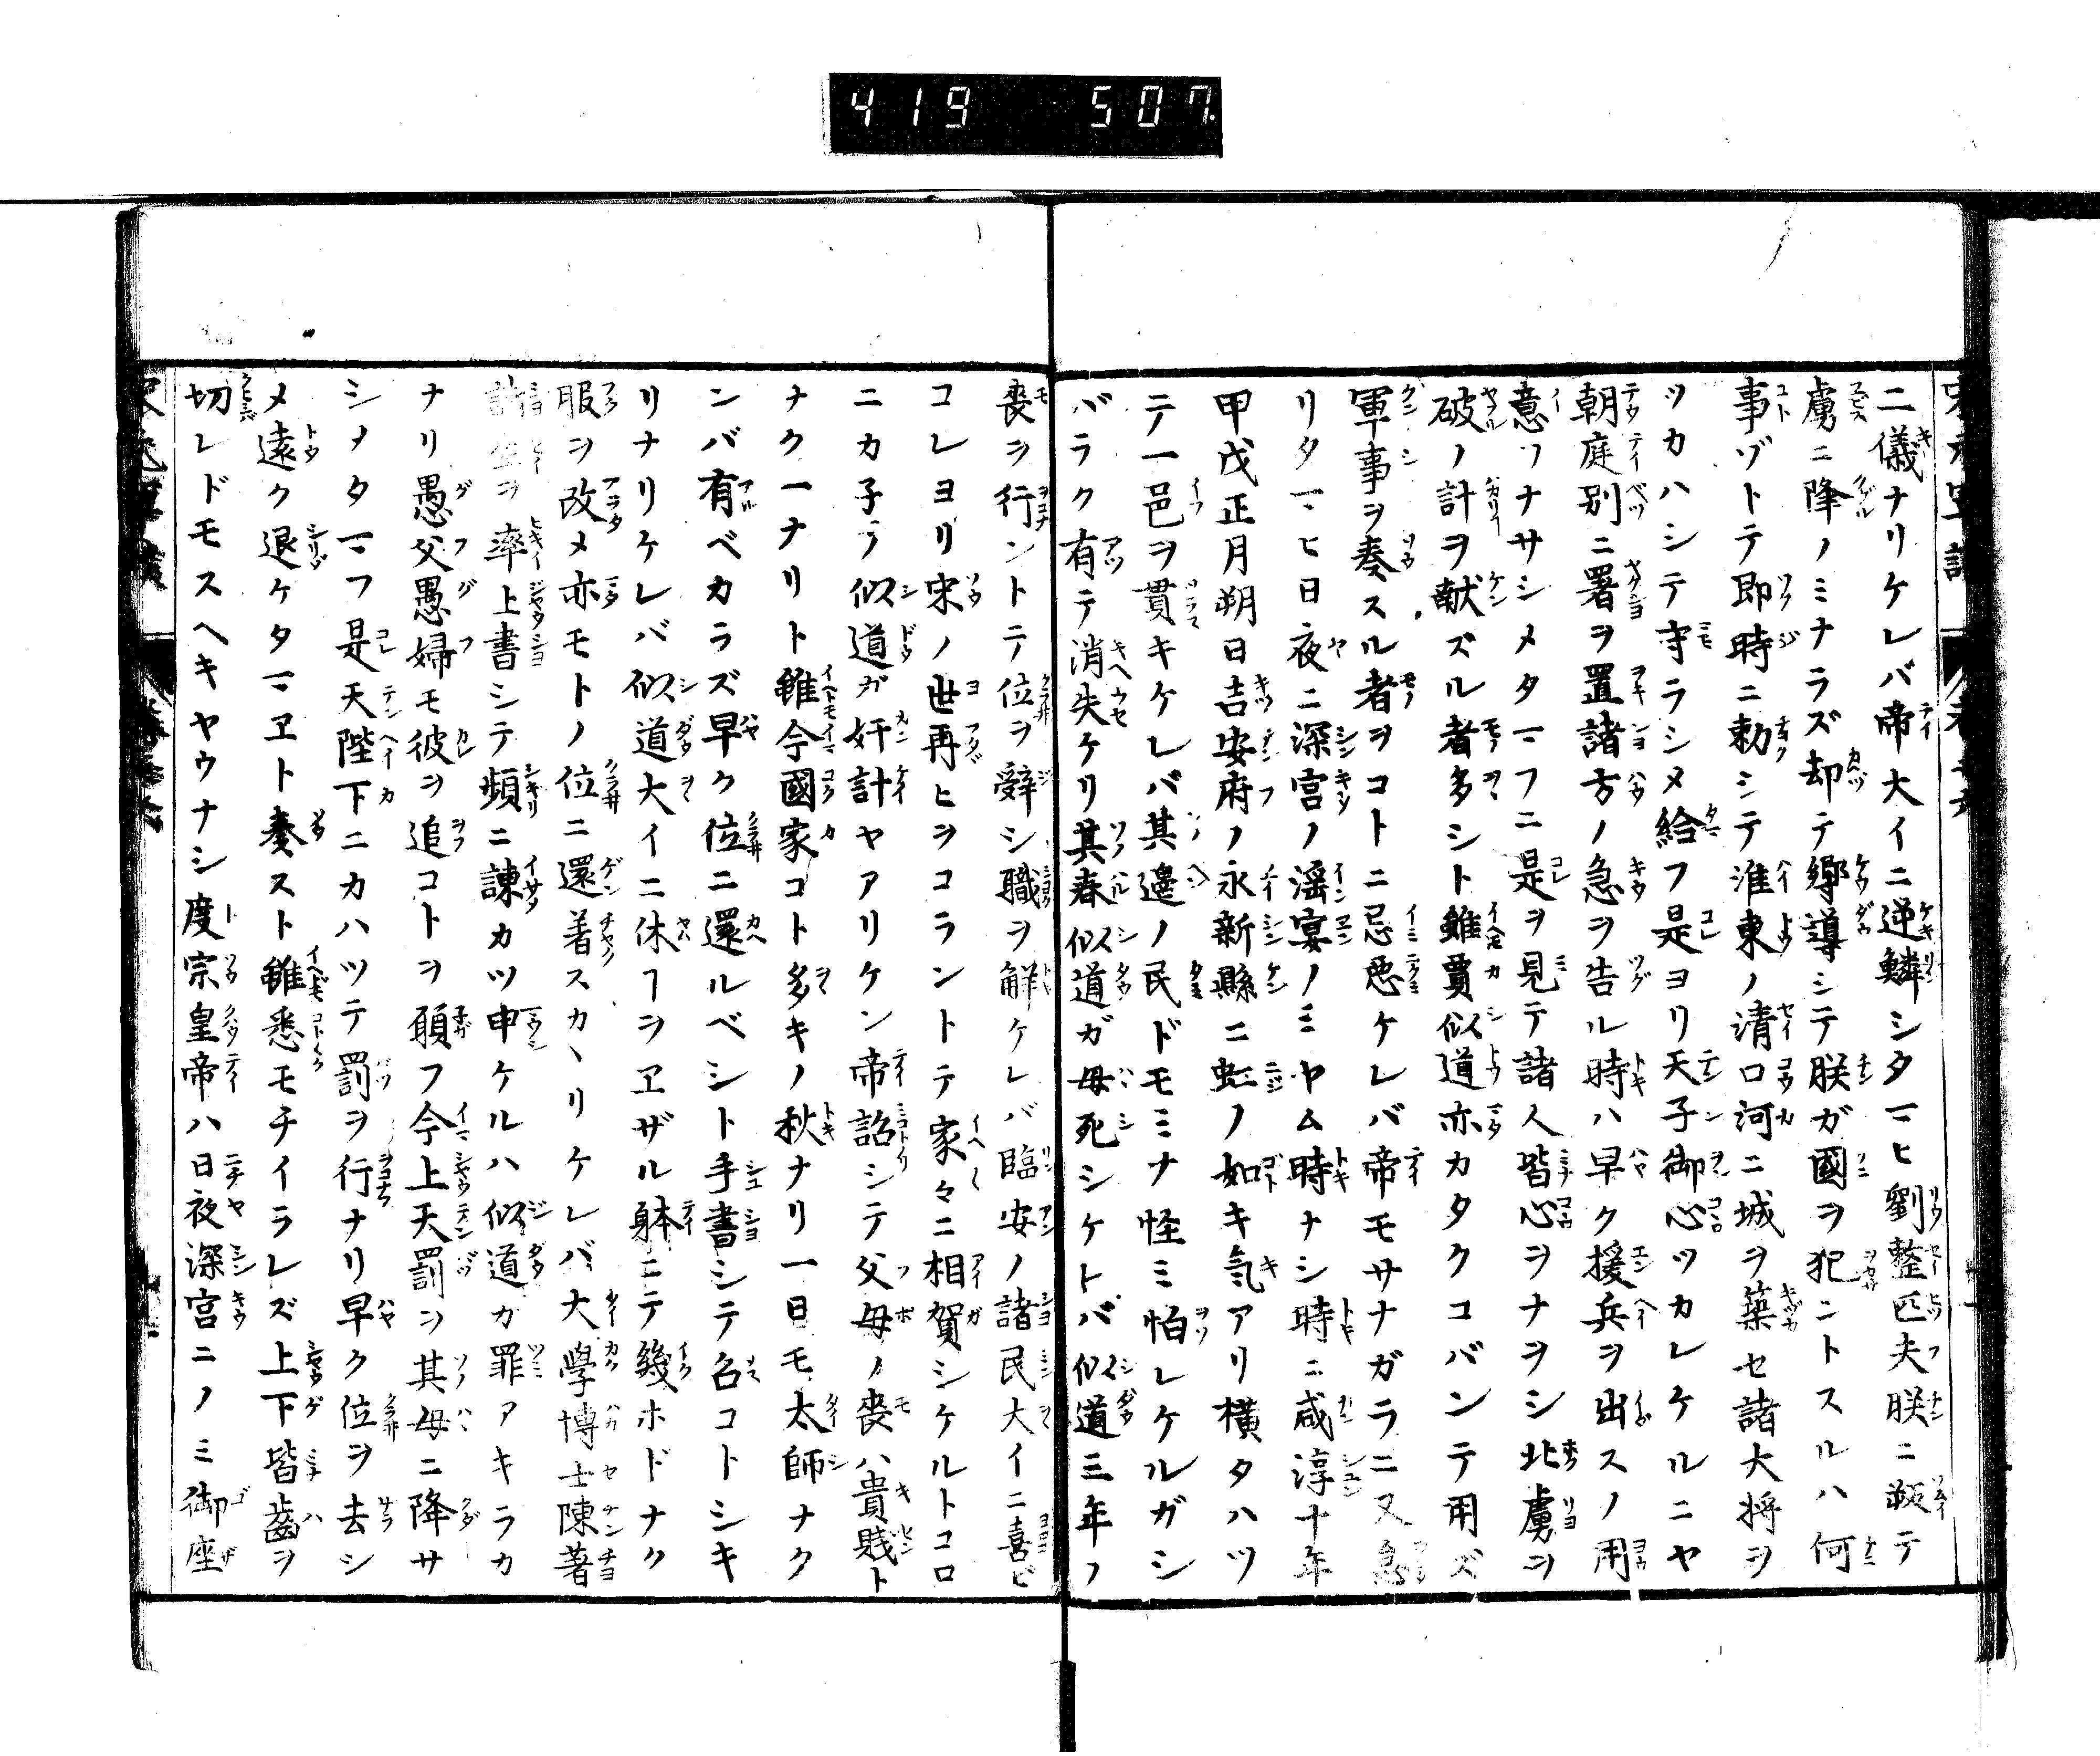 419 507
二儀ナリケレバ帝大イニ逆鱗シタマヒ劉整匹夫朕ニ叛テ
虜ニ降ノミナラズ却テ郷導シテ朕ガ國ヲ犯ントスルハ何
事ゾトテ即時ニ勅シテ淮東ノ清口河ニ城ヲ築セ諸大将ヲ
ツカハシテ守ラシメ給フ是ヨリ天子御心ツカレケルニヤ
朝庭別ニ署ヲ置諸方ノ急ヲ告ル時ハ早ク援兵ヲ出スノ用
意ヲナサシメタマフニ是ヲ見テ諸人皆心ヲナヲシ北虜ヲ
破ノ計ヲ献ズル者多シト雖賈似道亦カタクコバンテ用ズ
軍事ヲ奏スル者ヲコトニ忌悪ケレバ帝モサナガラニ又急
リタマヒ日夜ニ深宮ノ淫宴ノミヤム時ナシ時ニ咸淳十年
甲戌正月朔日吉安府ノ永新縣ニ虹ノ如キ気アリ横タハツ
テ一邑ヲ貫キケレバ其邉ノ民ドモミナ怪ミ怕レケルガシ
バラク有テ消失ケリ其春似道ガ母死シケトバ似道三年ノ
喪ヲ行ントテ位ヲ辞シ職ヲ解ケレバ臨安ノ諸民大イニ喜ビ
コレヨリ宋ノ世再ヒヲコラントテ家々ニ相賀シケルトコロ
ニカ子テ似道ガ奸計ヤアリケン帝詔シテ父母ノ喪ハ貴賤ト
ナク一ナリト雖今國家コト多キノ秋ナリ一日モ太師ナク
ンバ有ベカラズ早ク位ニ還ルベシト手書シテ召コトシキ
リナリケレバ似道大イニ休フヲヱザル躰ニテ幾ホドナク
服ヲ改メ亦モトノ位ニ還着スカヽリケレバ大學博士陳著
諸生ヲ率上書シテ頻ニ諌カツ申ケルハ似道カ罪アキラカ
ナリ愚父愚婦モ彼ヲ追コトヲ願フ今上天罰ヲ其母ニ降サ
シメタマフ是天陛下ニカハツテ罰ヲ行ナリ早ク位ヲ去シ
メ遠ク退ケタマヱト奏スト雖悉モチイラレズ上下皆齒ヲ
切レドモスヘキヤウナシ度宗皇帝ハ日夜深宮ニノミ御座